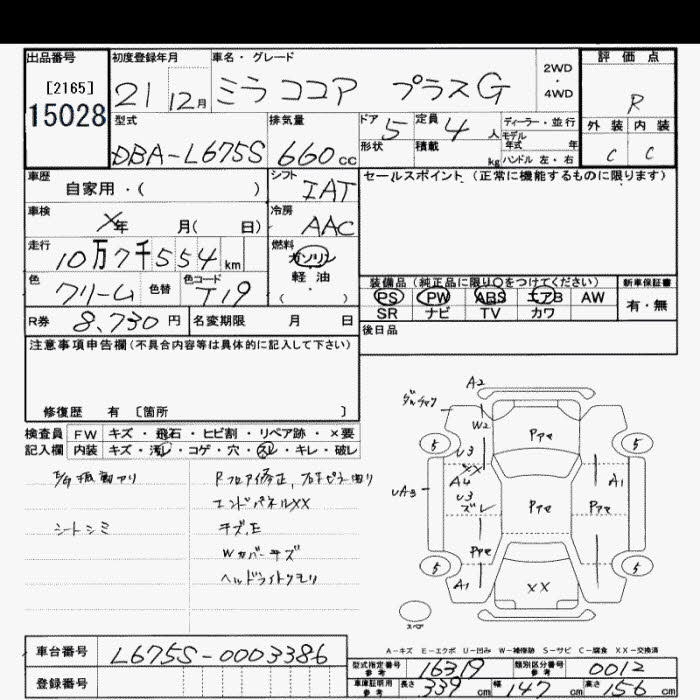 出品番号
[2165]
15028
初度登録年月
21 12月
車名・グレード
ミラ ココア プラスG
2WD
・
4WD
評価点
R
外装 内装
C C
型式
DBA-L675S
排気量
660cc
ドア
5
定員
4人
ディーラー・並行
モデル
年式 年
形状
積載
kg
ハンドル 左・右
車歴
自家用・( )
シフト
IAT
セールスポイント(正常に機能するものに限ります)
車検
X年 月( 日)
冷房
AAC
走行
10万7千554km
燃料
ガソリン
軽・油
・( )
色
クリーム
色替
色コード
T19
装備品(純正品に限り○をつけてください)
PS PW ABS エアB AW
SR ナビ TV カワ
新車保証書
有・無
R券 8,730円
名変期限 月 日
後日品
注意事項申告欄(不具合内容等は具体的に記入して下さい)
修復歴 有 〔箇所 〕
検査員 FW キズ・飛石・ヒビ割・リペア跡・×要
記入欄 内装 キズ・汚レ・コゲ・穴・スレ・キレ・破レ
シートシミ
エンドパネルXX
Wカバーキズ
ヘッドライトクモリ
A2
W2
Pアマ
5
5
U3
XX
A4
U3
ズレ
UA3
A1
Pアマ
Pアマ
Pアマ
5
A1
XX
5
スペア
A-キズ E-エクボ U-凹み W-補修跡 S-サビ C-腐食 XX-交換済
車台番号 L675S-0003386
登録番号
型式指定番号
参考
16319
類別区分番号
参考
0012
車庫証明用
参考
長さ 339cm 幅 147cm 高さ 156cm